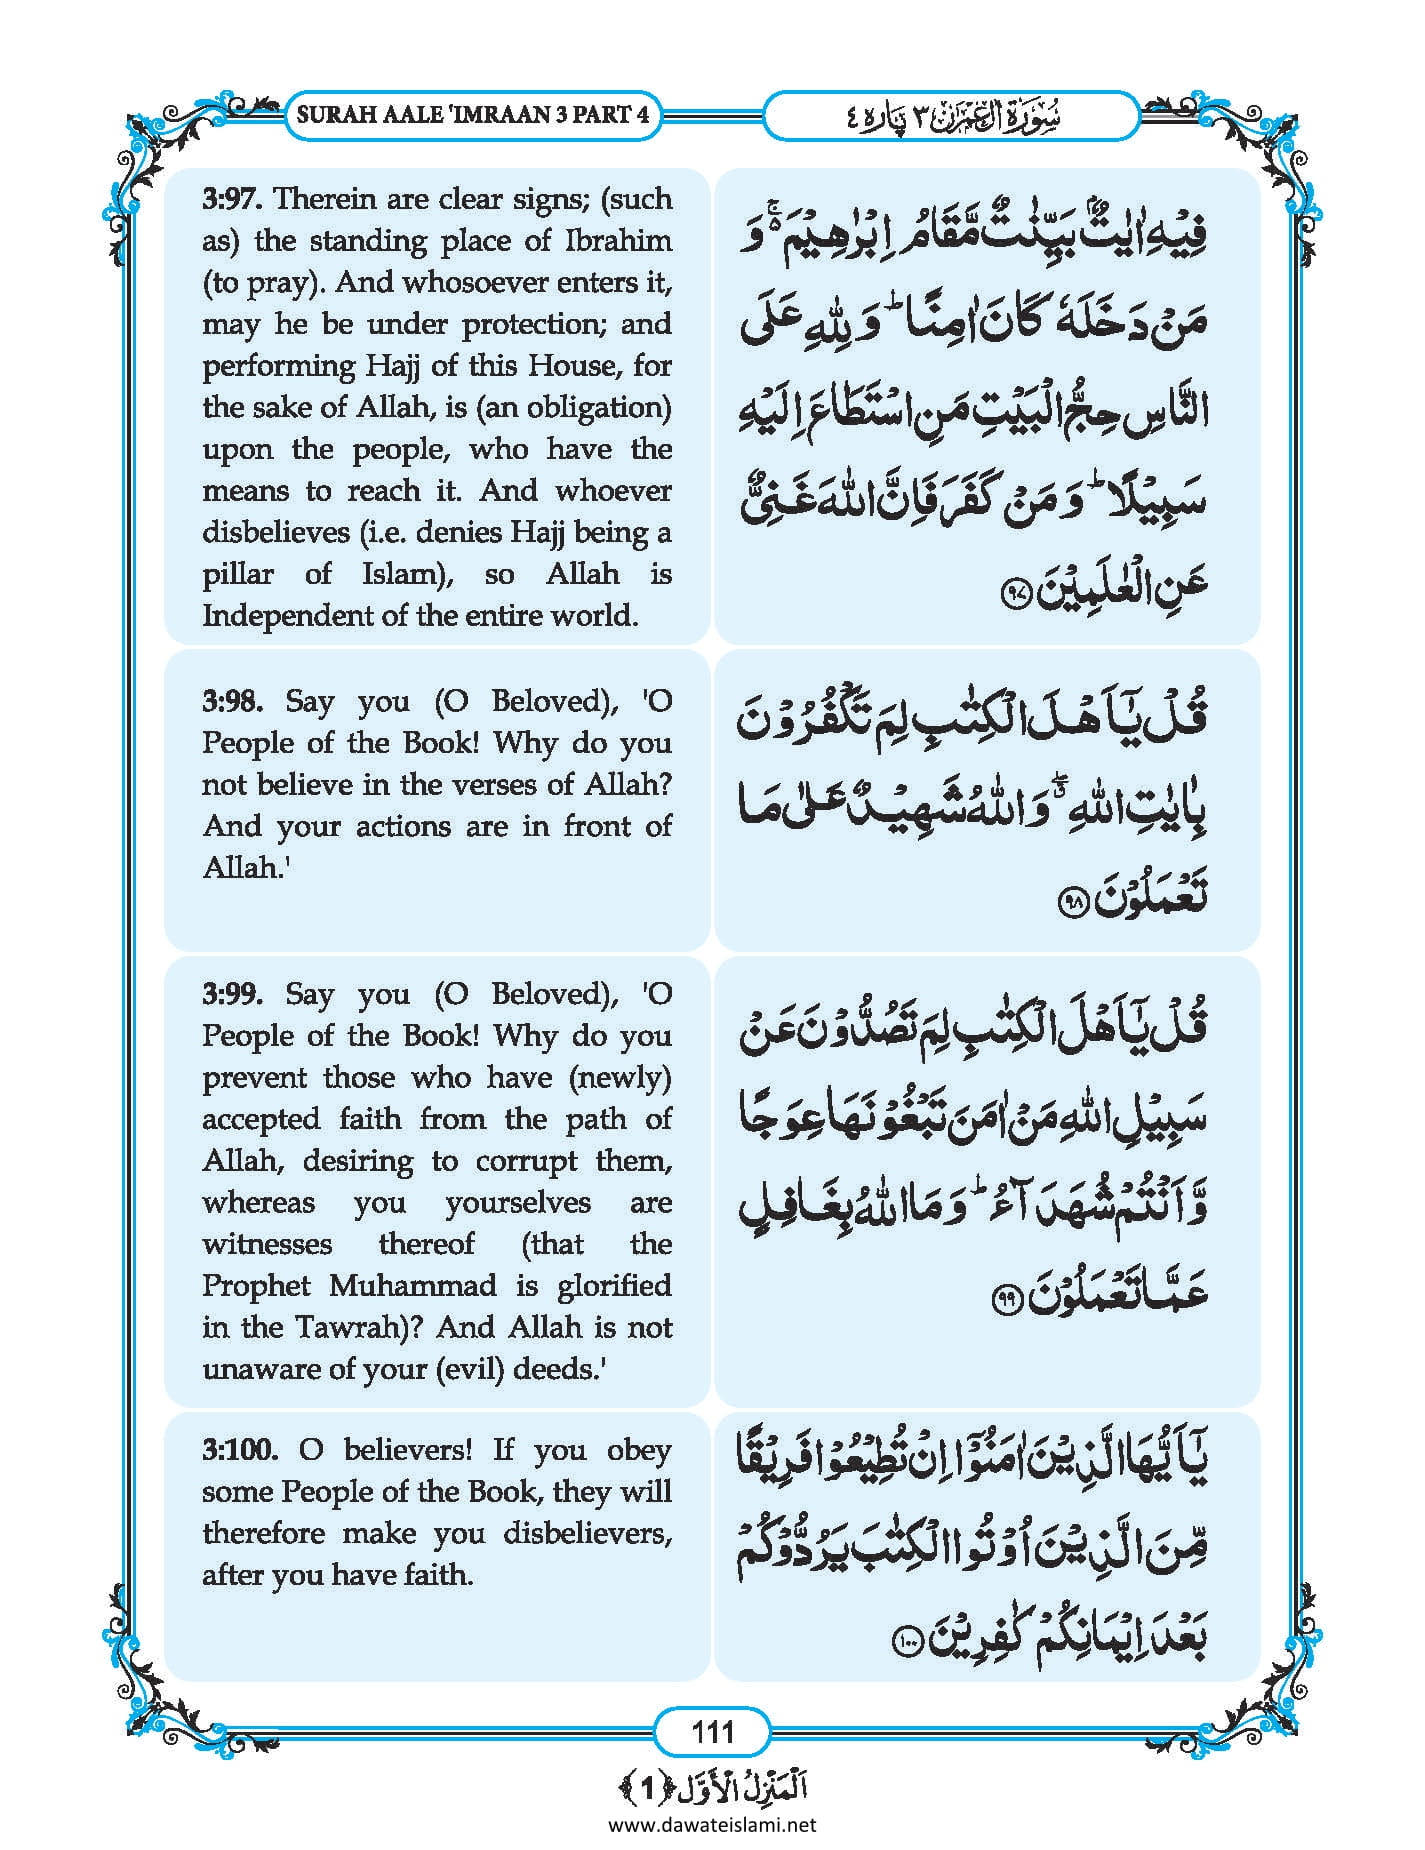 SURAH AALE 'IMRAAN 3 PART 4
سُوۡرَۃُ اٰلِ عِمۡرٰنَ ٣ پَارہ ٤
3:97. Therein are clear signs; (such
as) the standing place of Ibrahim
(to pray). And whosoever enters it,
may he be under protection; and
performing Hajj of this House, for
the sake of Allah, is (an obligation)
upon the people, who have the
means to reach it. And whoever
disbelieves (i.e. denies Hajj being a
pillar of Islam), so Allah is
Independent of the entire world.
فِیۡہِ اٰیٰتٌۢ بَیِّنٰتٌ مَّقَامُ اِبْرٰہِیۡمَ ۬ۚ وَ
مَنۡ دَخَلَہٗ کَانَ اٰمِنًا ؕ وَ لِلہِ عَلَی
النَّاسِ حِجُّ الْبَیۡتِ مَنِ اسْتَطَاعَ اِلَیۡہِ
سَبِیۡلًا ؕ وَ مَنۡ کَفَرَ فَاِنَّ اللہَ غَنِیٌّ
عَنِ الْعٰلَمِیۡنَ ﴿٩٧﴾
3:98. Say you (O Beloved), 'O
People of the Book! Why do you
not believe in the verses of Allah?
And your actions are in front of
Allah.'
قُلْ یٰۤاَہۡلَ الْکِتٰبِ لِمَ تَکْفُرُوۡنَ
بِاٰیٰتِ اللہِ ٭ۖ وَ اللہُ شَہِیۡدٌ عَلٰی مَا
تَعْمَلُوۡنَ ﴿٩٨﴾
3:99. Say you (O Beloved), 'O
People of the Book! Why do you
prevent those who have (newly)
accepted faith from the path of
Allah, desiring to corrupt them,
whereas you yourselves are
witnesses thereof (that the
Prophet Muhammad is glorified
in the Tawrah)? And Allah is not
unaware of your (evil) deeds.'
قُلْ یٰۤاَہۡلَ الْکِتٰبِ لِمَ تَصُدُّوۡنَ عَنۡ
سَبِیۡلِ اللہِ مَنْ اٰمَنَ تَبْغُوۡنَہَا عِوَجًا
وَّ اَنۡتُمْ شُہَدَآءُ ؕ وَ مَا اللہُ بِغَافِلٍ
عَمَّا تَعْمَلُوۡنَ ﴿٩٩﴾
3:100. O believers! If you obey
some People of the Book, they will
therefore make you disbelievers,
after you have faith.
یٰۤاَیُّہَا الَّذِیۡنَ اٰمَنُوۡۤا اِنۡ تُطِیۡعُوۡا فَرِیۡقًا
مِّنَ الَّذِیۡنَ اُوۡتُوا الْکِتٰبَ یَرُدُّوۡکُمۡ
بَعْدَ اِیۡمَانِکُمْ کٰفِرِیۡنَ ﴿١٠٠﴾
111
اَلْمَنْزِلُ الْاَوَّل ﴿1﴾
www.dawateislami.net